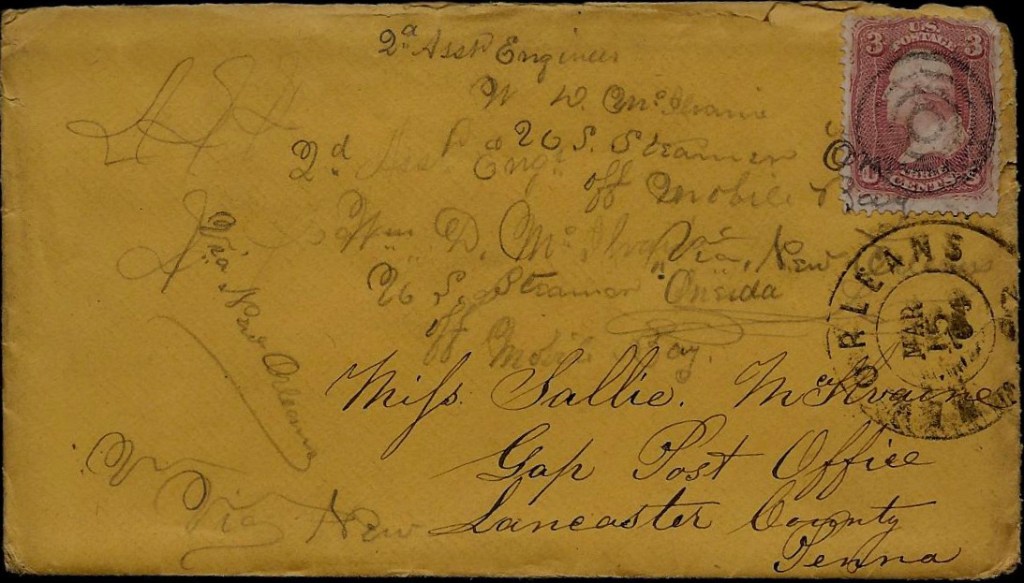 2d Asst Engineer
W. D. McIlvaine
U.S. Steamer
off Mobile Bay
Via, New Orleans
2d Asst Engr
Wm D. McIlvaine
U.S. Steamer Oneida
off Mobile Bay.
Via New Orleans
Via New
Miss. Sallie. McIlvaine
Gap Post Office
Lancaster County
Penna
3 U.S. POSTAGE 3
THREE CENTS
ORLEANS
MAR
15